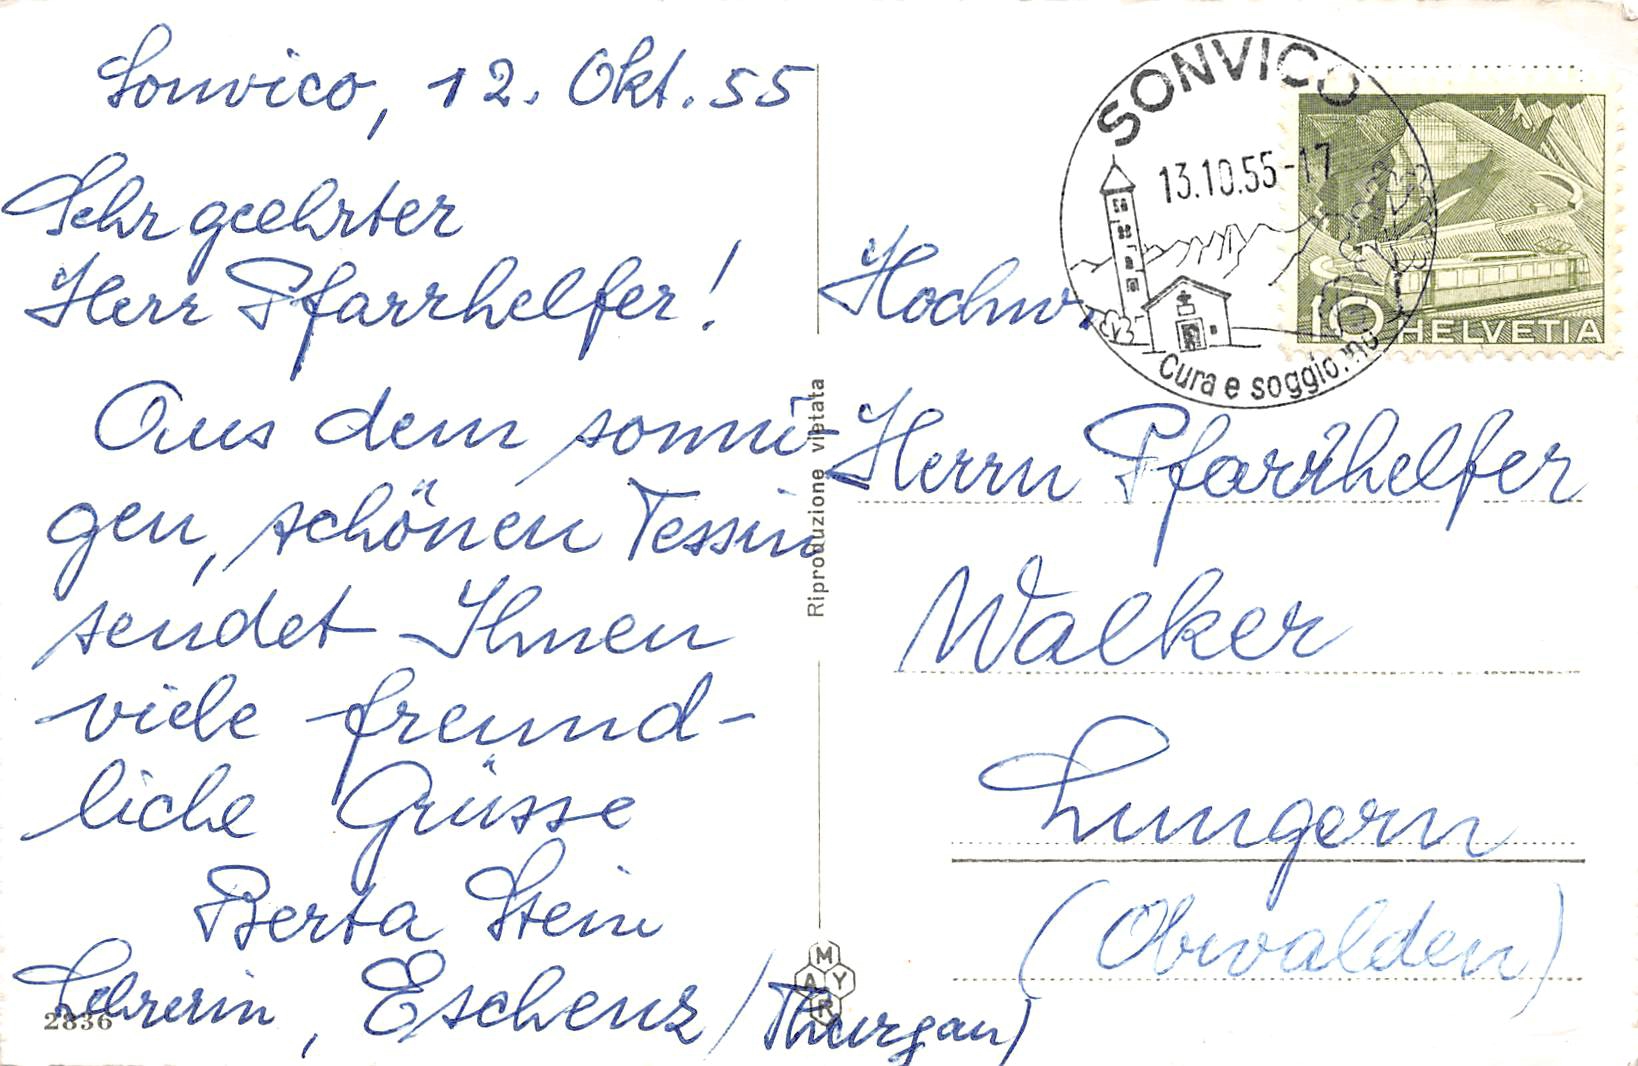 Sonvico, 12. Okt. 55
Sehr geehrter
Herr Pfarrhelfer!
Aus dem sonni-
gen, schönen Tessin
sendet Ihnen
viele freund-
liche Grüsse
Berta Stein
Lehrerin, Eschenz (Thurgau)
2836
Riproduzione vietata
MAYR
SONVICO
13.10.55-17
Cura e soggiorno
10 HELVETIA
Hochw.
Herrn Pfarrhelfer
Walker
Lungern
(Obwalden)